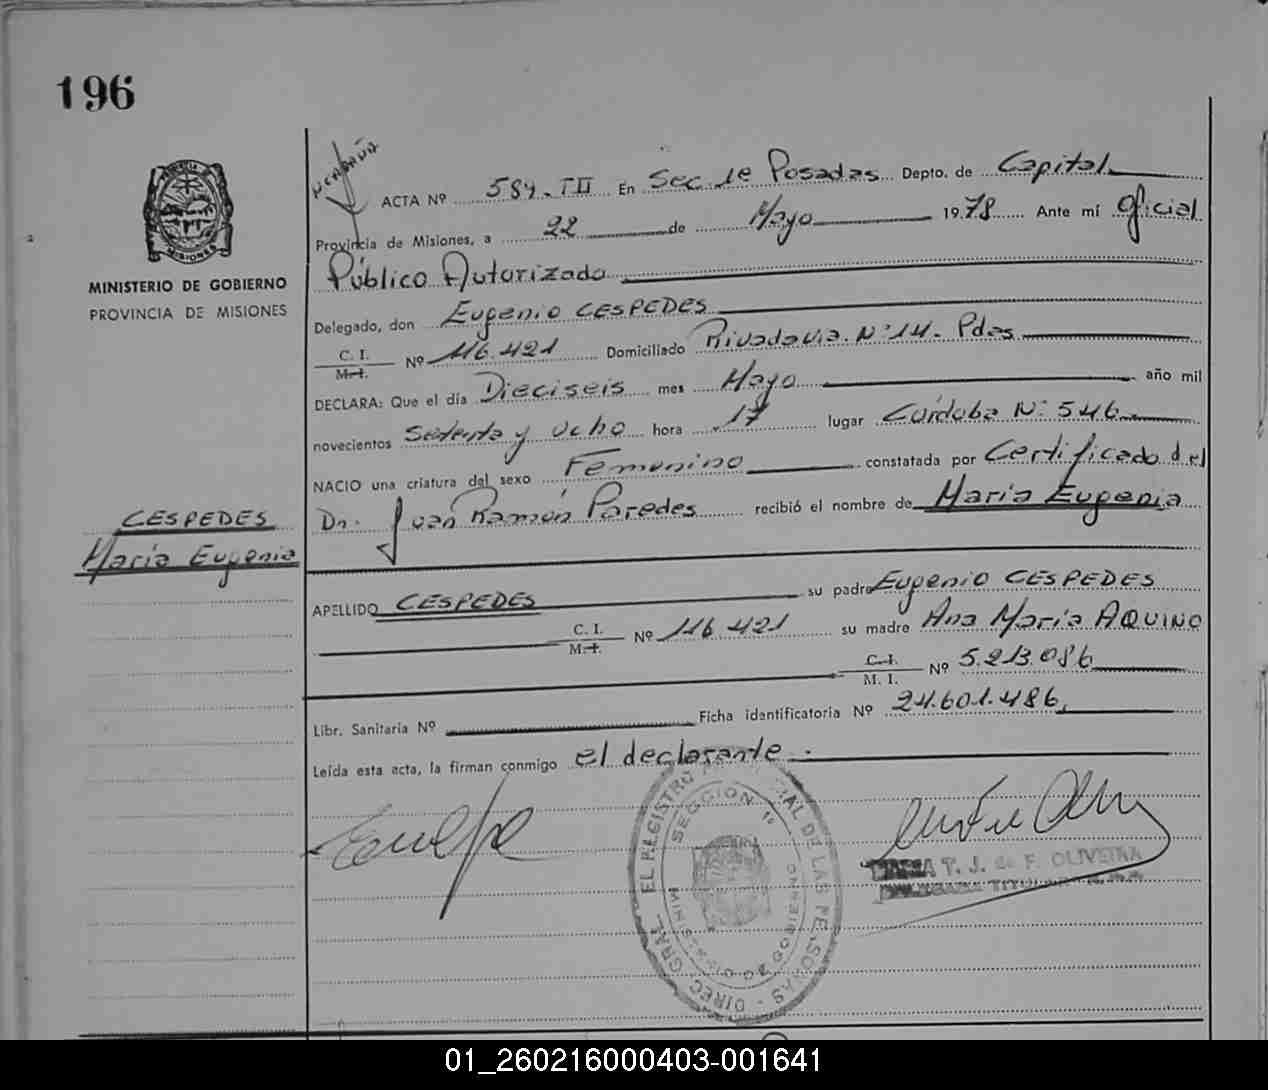 196
MINISTERIO DE GOBIERNO
PROVINCIA DE MISIONES
CESPEDES
María Eugenia
ACTA Nº 584-III En Sec. 1º Posadas Depto. de Capital
Provincia de Misiones, a 22 de Mayo 1978 Ante mí Oficial
Público Autorizado
Delegado, don Eugenio CESPEDES
C. I.
M. I. Nº 116.421 Domiciliado Rivadavia Nº 14. Pdas
DECLARA: Que el día Dieciseis mes Mayo año mil
novecientos Setenta y ocho hora 17 lugar Córdoba Nº 546
NACIO una criatura del sexo Femenino constatada por Certificado del
Dr. Juan Ramón Paredes recibió el nombre de María Eugenia
APELLIDO CESPEDES su padre Eugenio CESPEDES
C. I.
M. I. Nº 116.421 su madre Ana María AQUINO
C. I.
M. I. Nº 5.213.086
Libr. Sanitaria Nº Ficha identificatoria Nº 24.601.486
Leída esta acta, la firman conmigo el declarante.
SECCION 1º
T. J. de F. OLIVEIRA
01_260216000403-001641